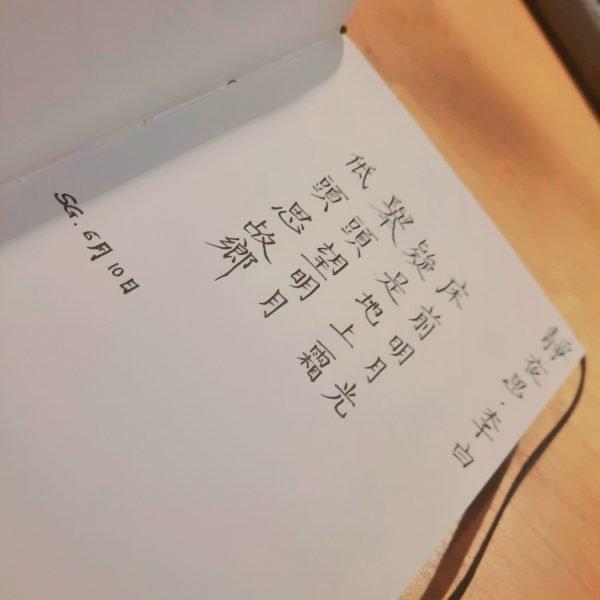 靜夜思·李白
床前明月光
疑是地上霜
舉頭望明月
低頭思故鄉
SG. 6月10日